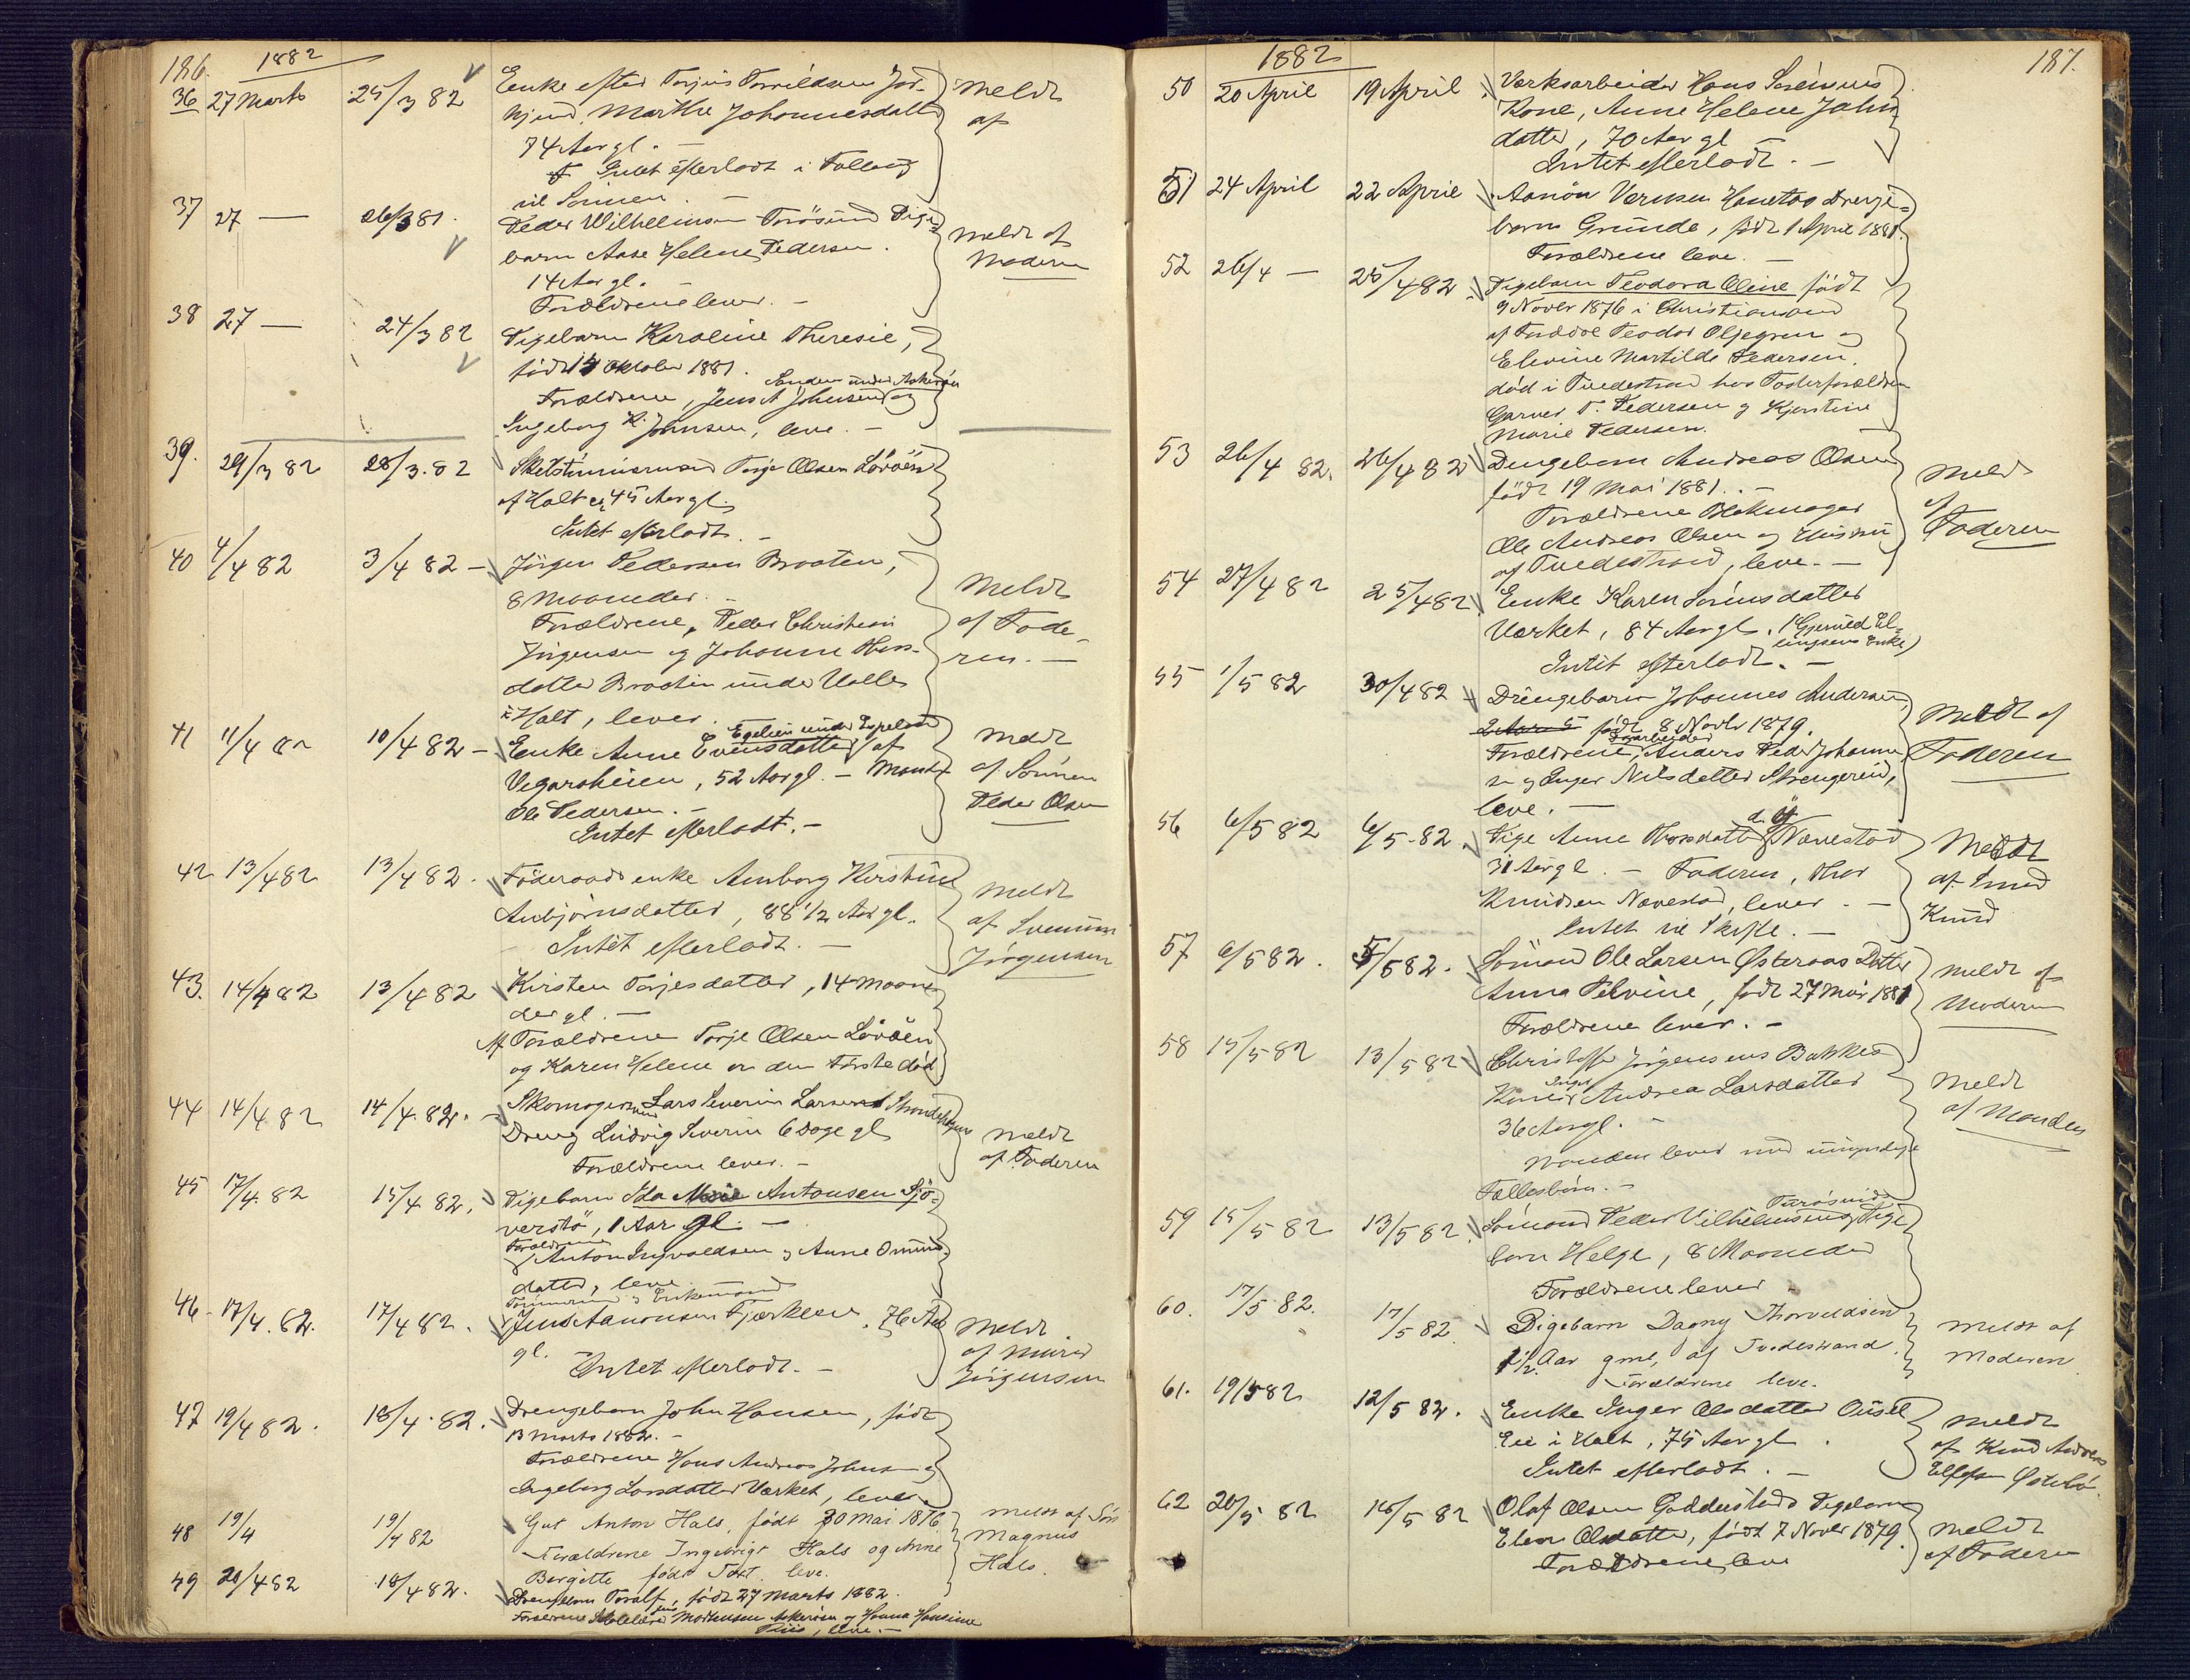 186. 1882
36 27 Marts 25/3 82 Enke efter Torjus Torvildsen
Marthe Johannesdatter
74 Aar gl. —
Intet efterladt i Fælleug
til Sönnen. —
Meldt
af
37 27 — 26/3 81. Peder Wilhelmsen Torösund Pige-
barn Aase Helene Pedersen.
14 Aar gl. —
Forældrene lever. —
Meldt af
Moderen
38 27 — 24/3 82 Pigebarn Karoline Theresie,
födt 14 Oktober 1881.
Sanden under Askerøen
Forældrene, Jens A Johnsen og
Ingeborg K. Johnsen, leve. —
39. 29/3 82 28/3. 82 Torje Olsen Lövåen
af Holt, 45 Aar gl.
Intet efterladt. —
40 4/4 82 3/4 82 — Jörgen Pedersen Braaten,
8 Maaneder. —
Forældrene, Peder Christian
Jörgensen og Johanne Hans-
datter Braaten under Valle
i Holt, lever.
Meldt
af Fade-
ren. —
41 11/4 82 10/4 82 — Enke Anne Evensdatter af
Vegarsheien, 52 Aar gl. — Mand
Ole Pedersen. —
Intet efterladt. —
Meldt
af Sönnen
Peder Olsen
42 13/4 82 13/4 82. Föderaads enke Anborg Kirstine
Anbjörnsdatter, 88 1/2 Aar gl.
Intet efterladt. —
Meldt
af
Jörgensen
43. 14/4 82 13/4 82 Kirsten Torjesdatter, 14 Maane-
der gl. —
Af Forældrene Torje Olsen Lövåen
og Karen Helene er den Förste död.
44 14/4 82 14/4. 82. — Skomager Lars Severin Larsen
Dreng Ludvig Severin 6 Dage gl
Forældrene lever. —
Meldt
af Faderen
45 17/4. 82 15/4 82. Pigebarn Ida Marie Antonsen Sjö-
verstö, 1 Aar gl. —
Forældrene
Anton Ingvaldsen og Anne Omunds-
datter, leve.
46. 17/4. 82. 17/4 82. Tömmermand og Enkemand
Jens Aanonsen Fjærkleiv, 76 Aar
gl.
Intet efterladt. —
Meldt
af Murer
Jörgensen
47 19/4 82. 18/4. 82. Drengebarn John Hansen, födt
13 Marts 1882. —
Forældrene Hans Andreas Johnsen og
Ingeborg Larsdatter Værket, lever.
48 19/4 19/4 82 Gut Anton Hals, født 30 Mai 1876
Forældrene Ingebrigt Hals og Anne
Bergitte født Tört. leve.
Meldt af
Magnus
Hals.
49 20/4 82 18/4 82. Drengebarn Toralf, födt 27 Marts 1882.
Forældrene Mortensen Askerøen og Hanna Hansine
leve. —
1882 187.
50 20 April 19 April Værksarbeider Hans Sörensens
Kone, Anne Helene Jahns-
datter, 70 Aar gl
Intet efterladt. —
51 24 April 22 April Aanön Vernsen Drenge-
barn Gunde, födt 1 April 1881.
Forældrene leve. —
52 26/4 — 25/4 82 Pigebarn Teodora Oline födt
9 Novbr 1876 i Christiansand
af Forældre Teodor Oljegren og
Elevine Martilde Pedersen.
död i Tvedestrand hos Fosterforældre
Garver T. Pedersen og Kjerstine
Marie Pedersen.
53 26/4 82. 26/4 82 Drengebarn Andreas Olsen
födt 19 Mai 1881. —
Forældrene Blokmager
Ole Andreas Olsen og Hustru
af Tvedestrand, leve. —
Meldt
af
Faderen
54 27/4 82 25/4 82 Enke Karen Sörensdatter
Værket, 84 Aar gl. (Gjeruld El-
lingsens Enke)
Intet efterladt. —
55 1/5 82 30/4 82 — Drengebarn Johannes Andersen
födt 8 Novbr 1879.
Forældrene, Anders Peder Johanne-
sen og Inger Nilsdatter Strengereid,
leve. —
Meldt af
Faderen
56 6/5 82 6/5. 82. Pige Anne Thorsdatter Nævestad
31 Aar gl. — Faderen, Thor
Knudsen Nævestad, lever. —
Intet til Skifte. —
Meldt
af Smed
Knud
57 6/5 82. 5/5 82. Sömand Ole Larsen Østeraas Datter
Anna Pelvine, födt 27 Mai 1881
Forældrene lever. —
Meldt af
Moderen
58 15/5 82 13/5 82 Christoffer Jörgensens Bakkes
Kone Inger Andrea Larsdatter
36 Aar gl. —
Manden lever med umyndige
Fællesbörn. —
Meldt
af Manden
59 15/5 82 13/5 82. Torösund
Sömand Peder Vilhelmsens Pige-
barn Helge, 8 Maaneder
Forældrene lever
60. 17/5 82. 17/5 82. Pigebarn Dagny Thorvaldsen
1 1/2 Aar gml, af Tvedestrand.
Forældrene leve.
Meldt af
Moderen
61. 19/5 82 12/5 82. Enke Inger Olsdatter
Eie i Holt, 75 Aar gl.
Intet efterladt. —
Meldt
af Knud Andreas
Ellefsen Östebö.
62 20/5 82 16/5 82 Olaf Olsen Goderstads Pigebarn
Elen Olsdatter, födt 7 Novbr 1879.
Forældrene leve
Meldt
af Faderen